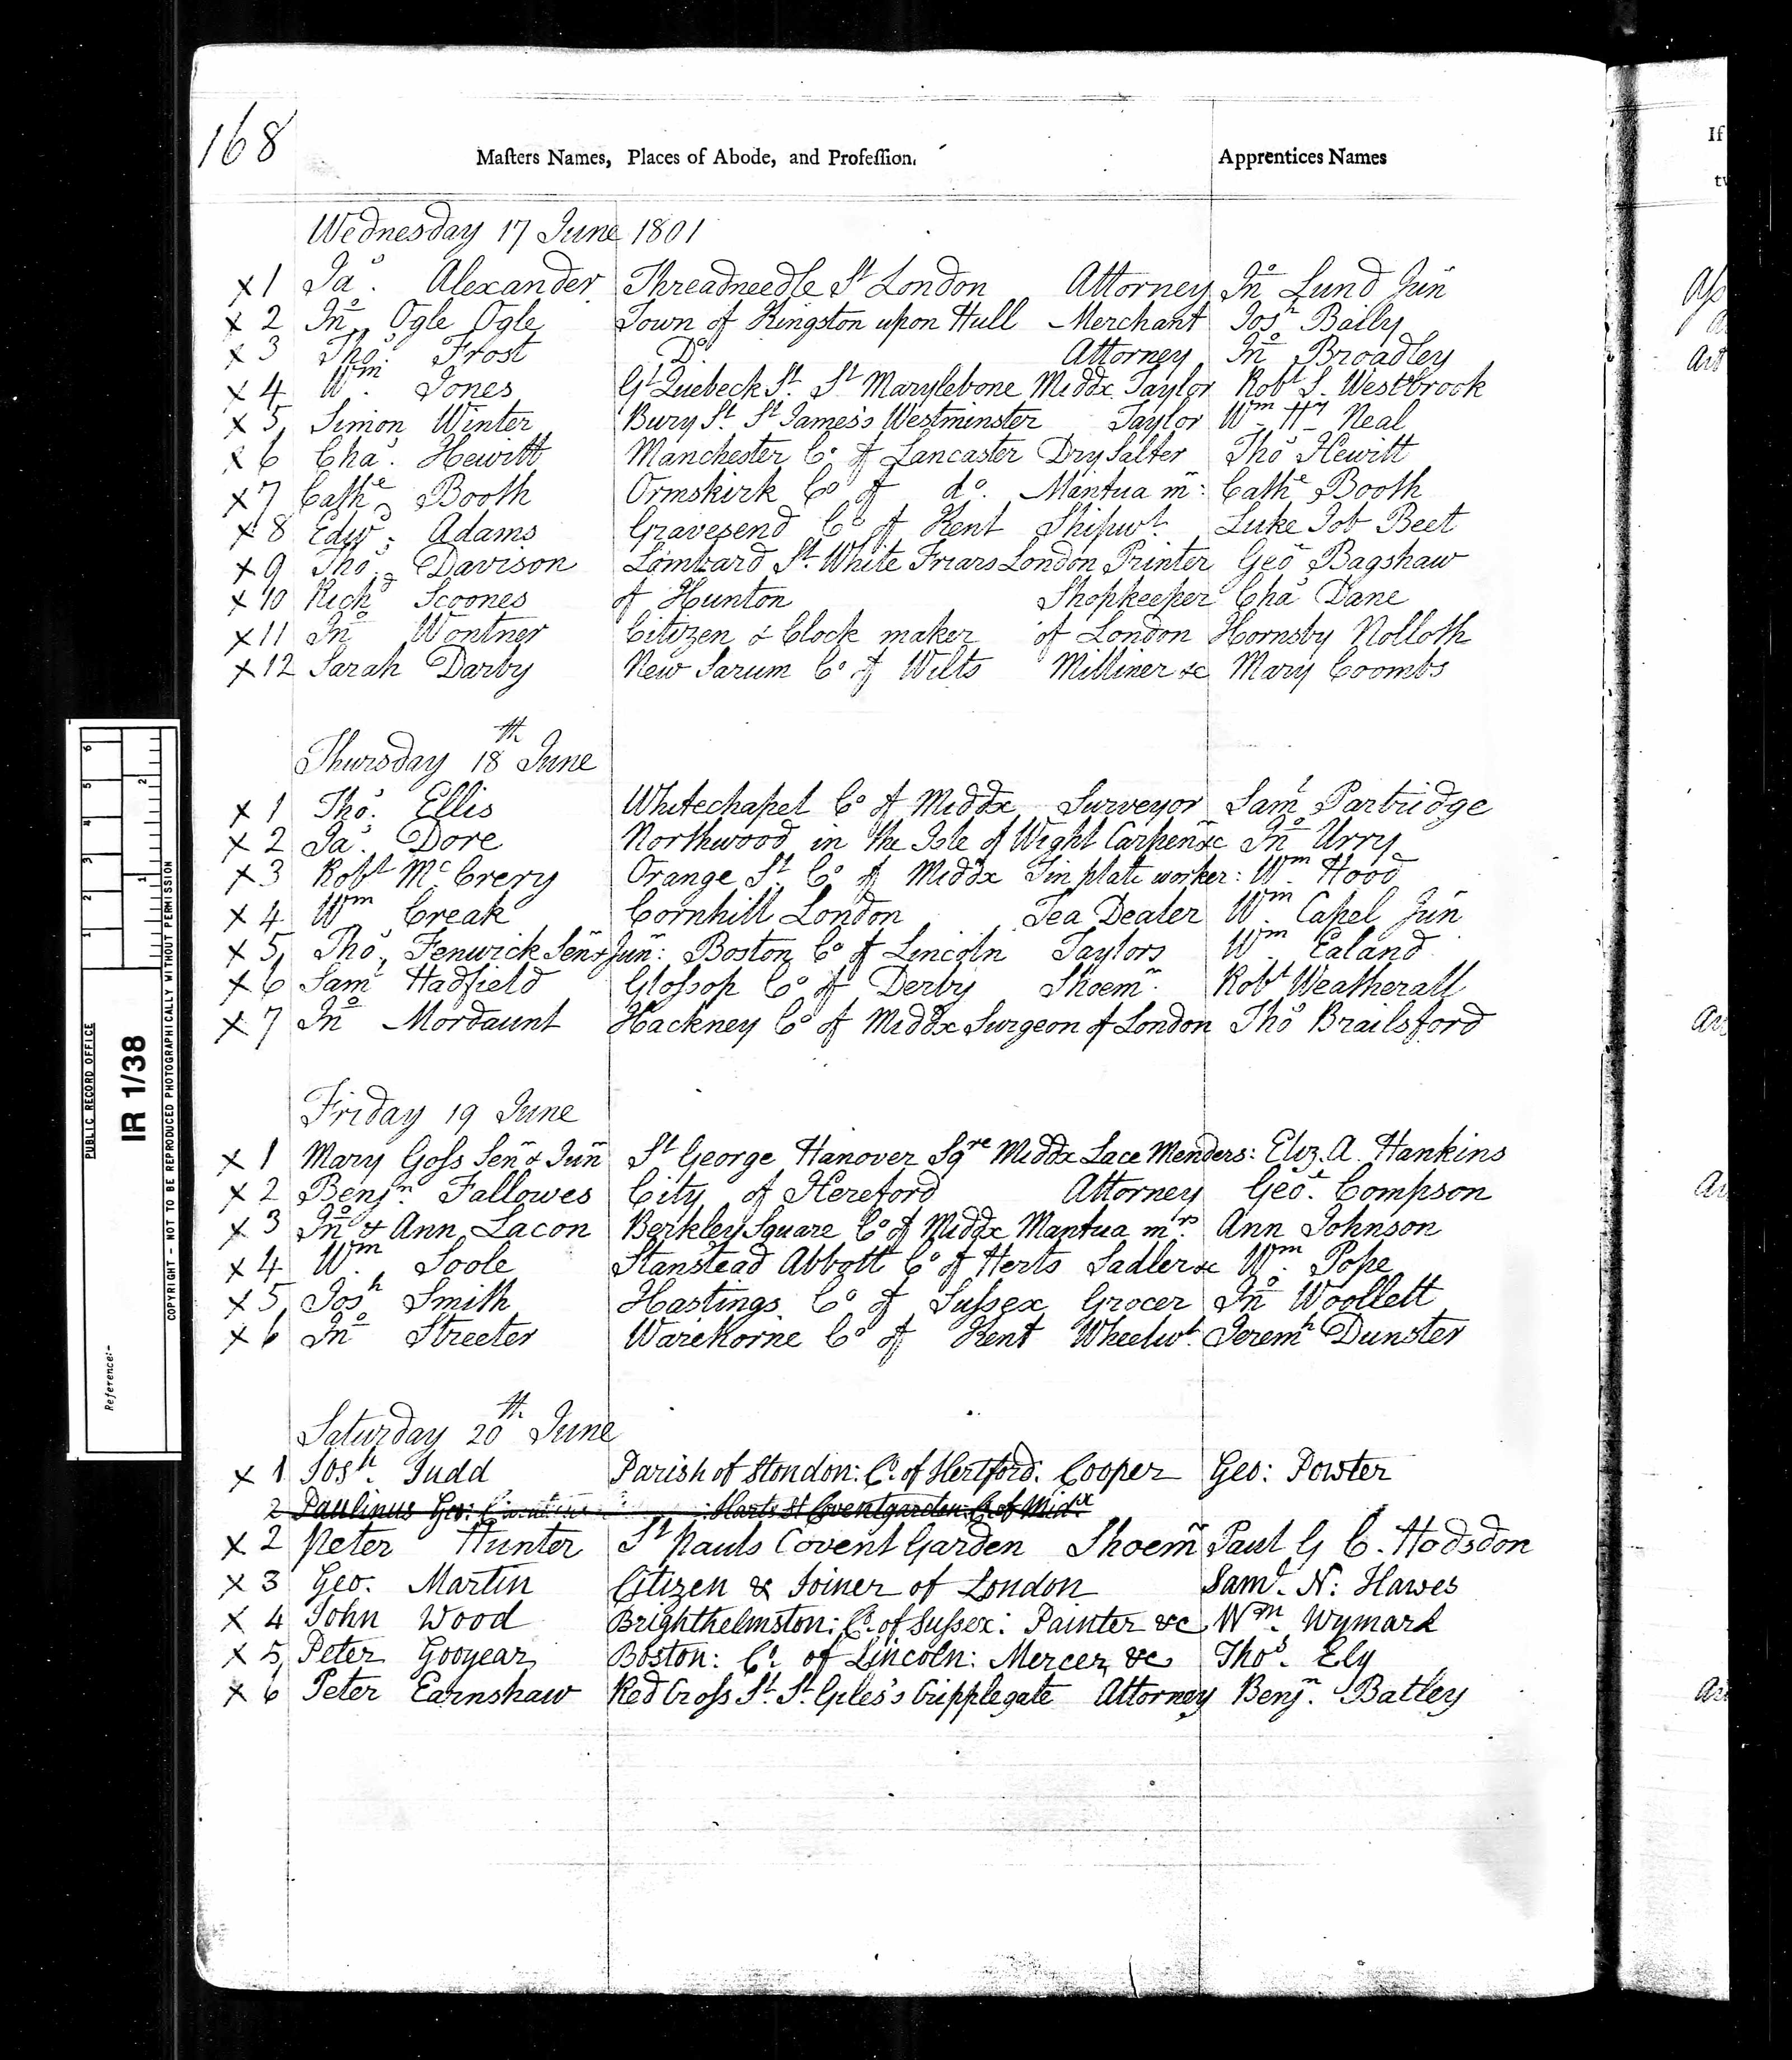 168
Maſters Names, Places of Abode, and Profeſſion. Apprentices Names
Wednesday 17 June 1801
x 1 Jas. Alexander Threadneedle St London Attorney Jno Lund Jun
x 2 Jno Ogle Ogle Town of Kingston upon Hull Merchant Josh Baily
x 3 Thos. Frost Do. Attorney Jno Broadley
x 4 Wm. Jones Gt Quebeck St. St Marylebone Middx Taylor Robt S. Westbrook
x 5 Simon Winter Bury St. St James's Westminster Taylor Wm Hy Neal
x 6 Chas. Hewitt Manchester Co of Lancaster Dry Salter Thos Hewitt
x 7 Cathe Booth Ormskirk Co of do. Mantua mr: Cathe Booth
x 8 Edwd: Adams Gravesend Co of Kent Shipwt. Luke Job Beet
x 9 Thos. Davison Lombard St. White Friars London Printer Geo Bagshaw
x 10 Richd Scoones of Hunton Shopkeeper Chas Dane
x 11 Jno Wontner Citizen & Clock maker of London Hornsby Nolloth
x 12 Sarah Darby New Sarum Co of Wilts Milliner &c Mary Coombs
Thursday 18th June
x 1 Thos. Ellis Whitechapel Co of Middx Surveyor Saml Partridge
x 2 Jas. Dore Northwood in the Isle of Wight Carpenr &c Jno Urry
x 3 Robt McCrery Orange St Co of Middx Tin plate worker: Wm. Hood
x 4 Wm Creak Cornhill London Tea Dealer Wm. Capel Jun
x 5 Thos. Fenwick Senr & Junr: Boston Co of Lincoln Taylors Wm Ealand
x 6 Saml Hadfield Gloſsop Co of Derby Shoemr. Robt Weatherall
x 7 Jno Mordaunt Hackney Co of Middx Surgeon of London Thos Brailsford
Friday 19 June
x 1 Mary Goſs Sen & Jun St George Hanover Sqre Middx Lace Menders: Eliz. A. Hankins
x 2 Benjn. Fallowes City of Hereford Attorney Geo. Compson
x 3 Jno & Ann Lacon Berkley Square Co of Middx Mantua mrs. Ann Johnson
x 4 Wm. Soole Stanstead Abbott Co of Herts Sadler &c Wm. Pope
x 5 Josh Smith Hastings Co of Suſsex Grocer Jno Woollett
x 6 Jno Streeter Warehorne Co of Kent Wheelwt. Jeremh Dunster
Saturday 20th June
x 1 Josh. Judd Parish of Stondon: Co. of Hertford. Cooper Geo: Powter
2 Paulinus Geo: Harts St Coventgarden Co of Midx
x 2 Peter Hunter St Pauls Covent Garden Shoemr Paul G C. Hodsdon
x 3 Geo. Martin Citizen & Joiner of London Saml. N: Hawes
x 4 John Wood Brighthelmston: Co. of Suſsex: Painter &c Wm. Wymark
x 5 Peter Gooyear Boston: Co. of Lincoln: Mercer, &c Thos. Ely
x 6 Peter Earnshaw Red Croſs St. St Giles's Cripplegate Attorney Benjn. Batley
PUBLIC RECORD OFFICE
IR 1/38
Reference:-
COPYRIGHT - NOT TO BE REPRODUCED PHOTOGRAPHICALLY WITHOUT PERMISSION
If